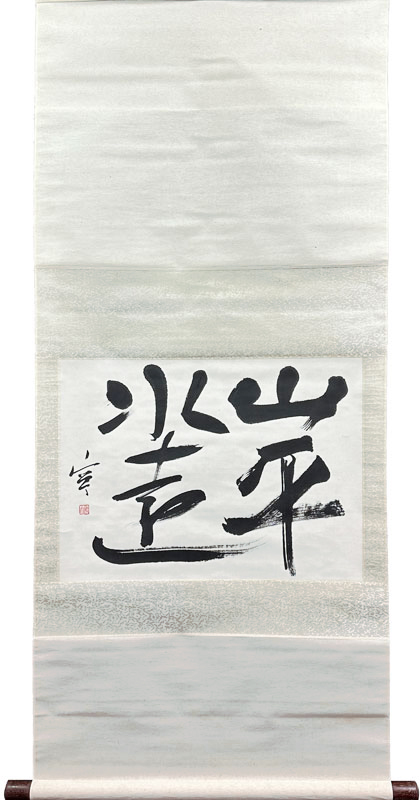 山平
水遠